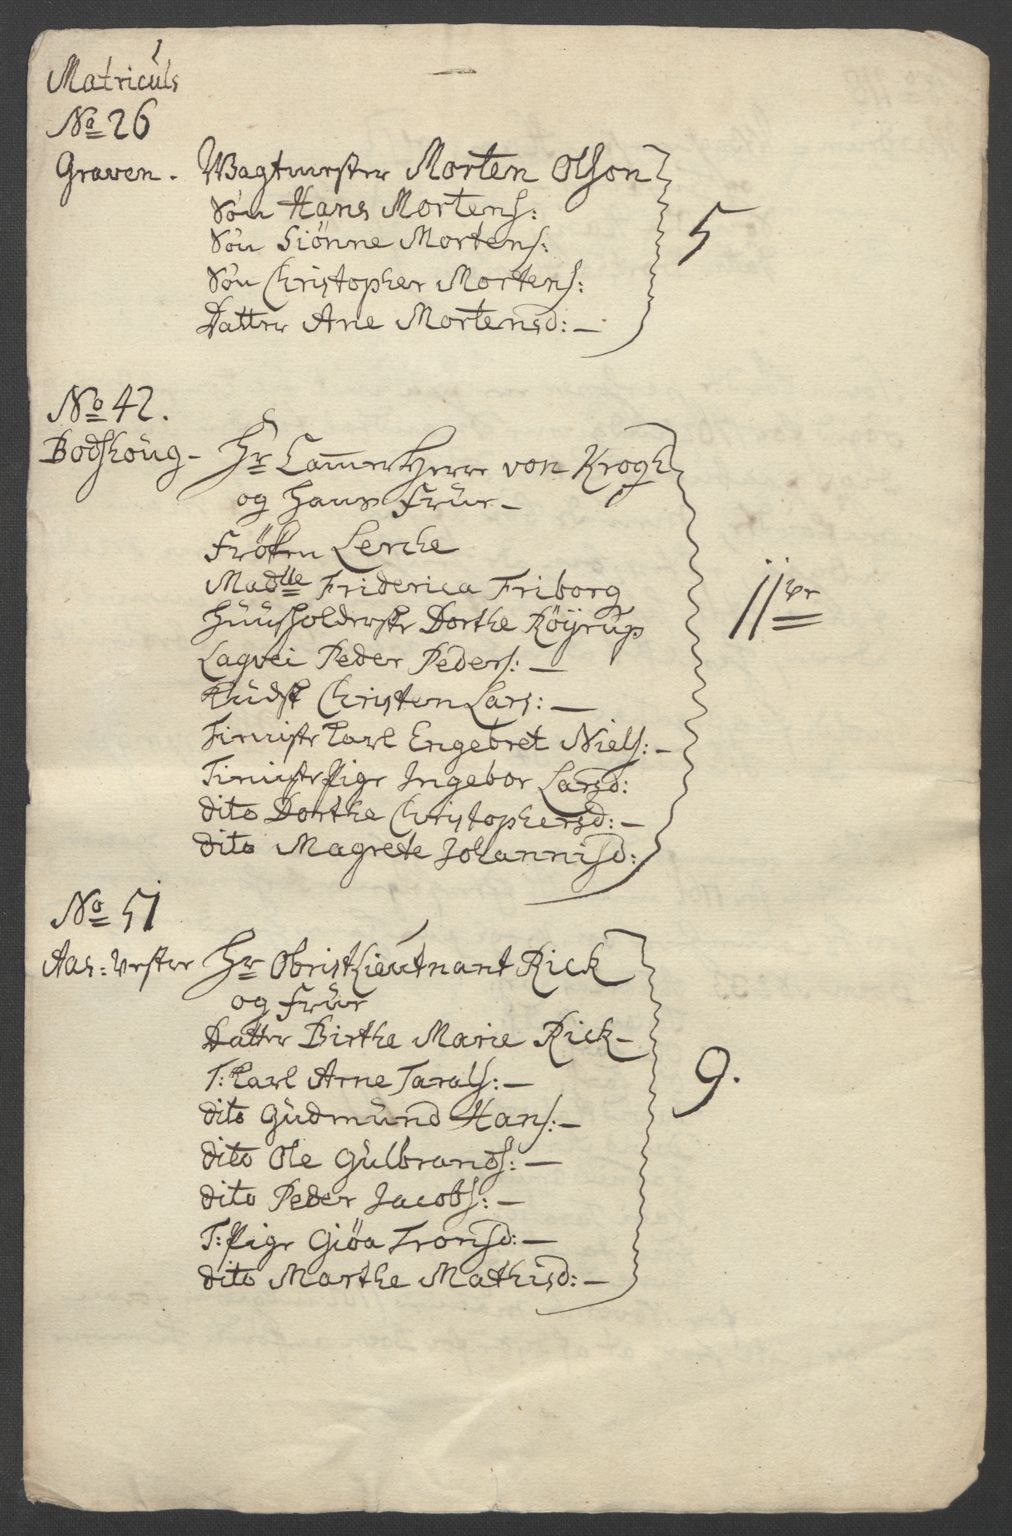 Matriculs
No 26
Graven. Wagtmester Morten Olson
Søn Hans Mortens:
Søn Siønne Mortens:
Søn Christopher Mortens:
Datter Ane Mortensd: —
5
No 42.
Bodskoug - Hr Cam̅erHerre von Krogh
og Hans Frue -
Frøken Lerche
Madlle Friderica Friborg
Huusholderske Dorthe Køyrup
Laqvei Peder Peders: —
Kudsk Christen Lars: —
Tieniste Karl Engebret Niels: —
Tienistepige Ingebor Larsd:
dito Dorthe Christophersd: —
dito Magrete Johannisd:
11
No 51
Aas=Vestre Hr Obristlieutnant Rick
og Frue
Datter Birthe Marie Rick —
T: Karl Arne Tarals: —
dito Gudmund Hans: —
dito Ole Gulbrands: —
dito Peder Jacobs: —
T: Pige Giøa Tronsd: —
dito Marthe Mathisd: —
9.